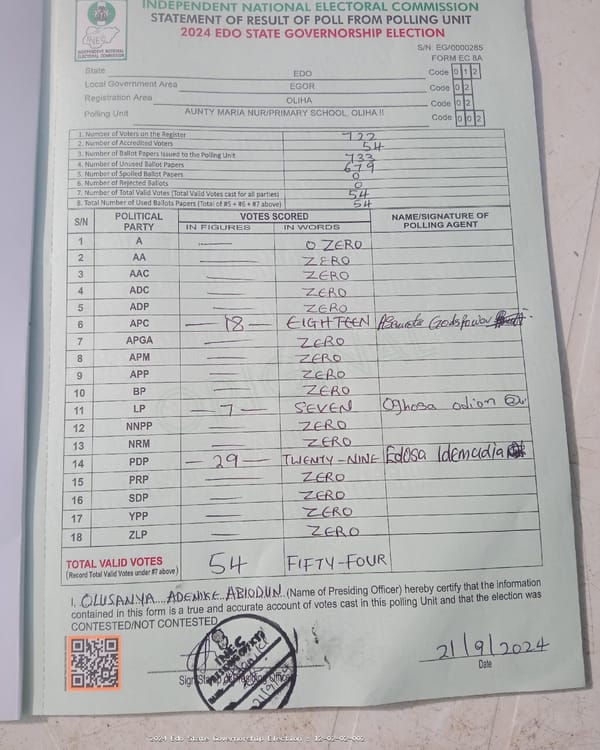 INDEPENDENT NATIONAL ELECTORAL COMMISSION
STATEMENT OF RESULT OF POLL FROM POLLING UNIT
2024 EDO STATE GOVERNORSHIP ELECTION
INEC
INDEPENDENT NATIONAL ELECTORAL COMMISSION
S/N: EG/0000285
FORM EC 8A
State EDO Code 0 1 2
Local Government Area EGOR Code 0 2
Registration Area OLIHA Code 0 2
Polling Unit AUNTY MARIA NUR/PRIMARY SCHOOL, OLIHA II Code 0 0 2
1. Number of Voters on the Register 722
2. Number of Accredited Voters 54
3. Number of Ballot Papers Issued to the Polling Unit 733
4. Number of Unused Ballot Papers 679
5. Number of Spoiled Ballot Papers 0
6. Number of Rejected Ballots 0
7. Number of Total Valid Votes (Total Valid Votes cast for all parties) 54
8. Total Number of Used Ballots Papers (Total of #5 + #6 + #7 above) 54
S/N POLITICAL PARTY VOTES SCORED NAME/SIGNATURE OF POLLING AGENT
IN FIGURES IN WORDS
1 A — 0 ZERO
2 AA — ZERO
3 AAC — ZERO
4 ADC — ZERO
5 ADP — ZERO
6 APC — 18 — EIGHTEEN Godspower
7 APGA — ZERO
8 APM — ZERO
9 APP — ZERO
10 BP — ZERO
11 LP — 7 — SEVEN Oghosa odion
12 NNPP — ZERO
13 NRM — ZERO
14 PDP — 29 — TWENTY-NINE Edosa Idemudia
15 PRP — ZERO
16 SDP — ZERO
17 YPP — ZERO
18 ZLP — ZERO
TOTAL VALID VOTES 54 FIFTY-FOUR
(Record Total Valid Votes under #7 above)
I, OLUSANYA ADENIKE ABIODUN (Name of Presiding Officer) hereby certify that the information
contained in this form is a true and accurate account of votes cast in this polling Unit and that the election was
CONTESTED/NOT CONTESTED
INEC
21/9/2024
Signature of Presiding Officer
Date
2024 Edo State Governorship Election : 12-02-02-002